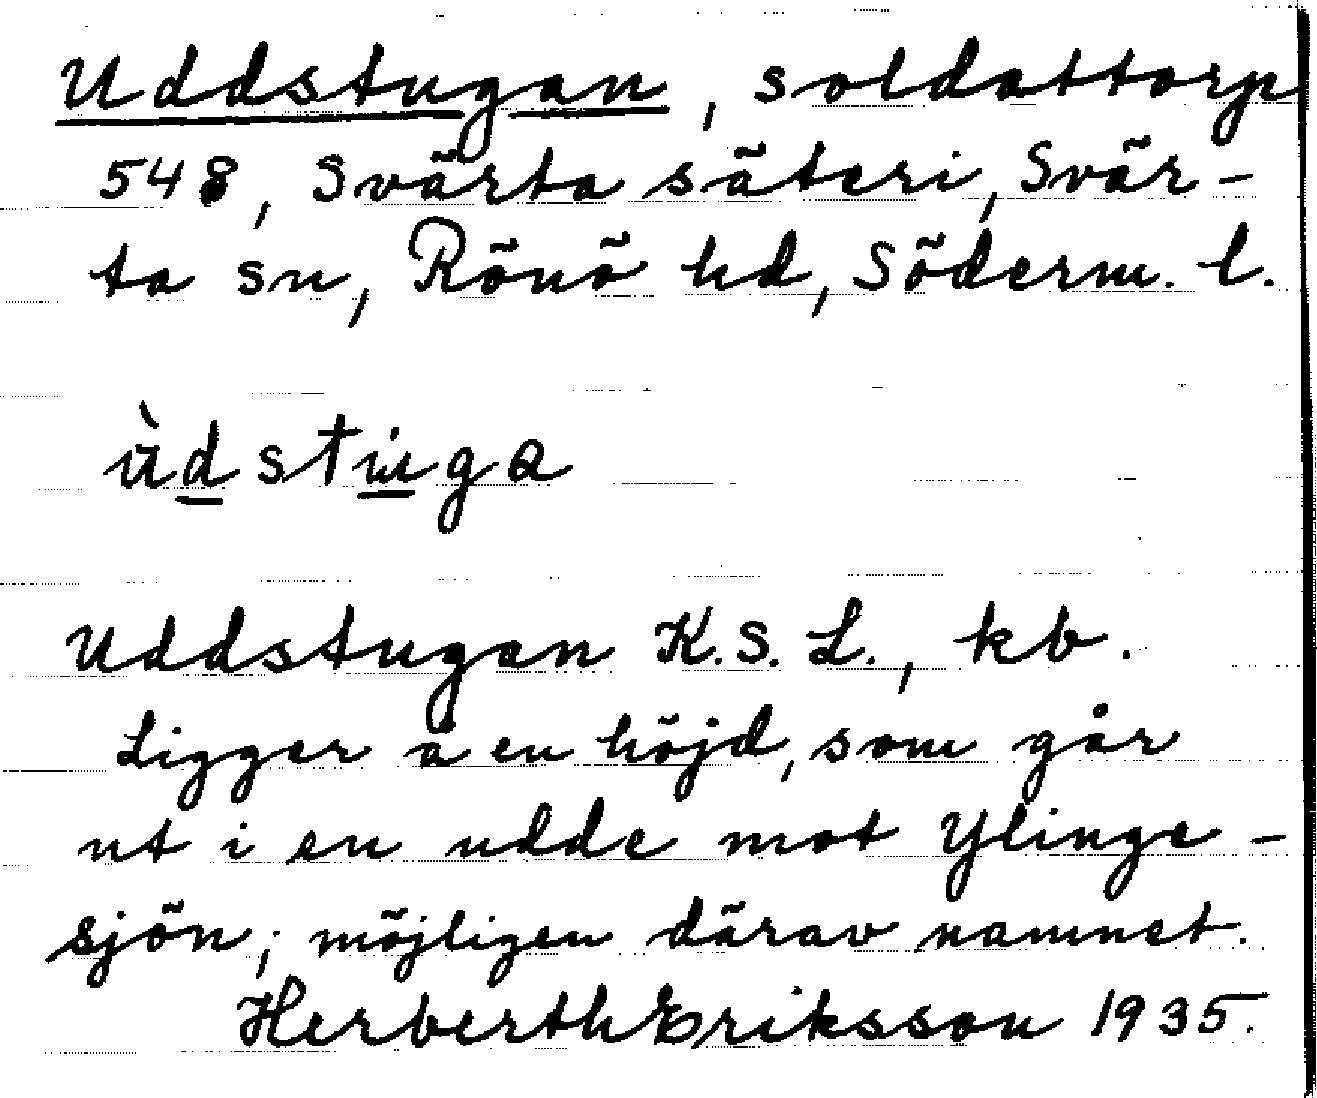 Uddstugan, soldattorp
548, Svärta säteri, Svär-
ta sn, Rönö hd, Söderm. l.
ùdstuga
Uddstugan K.S.L., kb.
Ligger å en höjd, som går
ut i en udde mot Ylinge-
sjön; möjligen därav namnet.
Herberth Eriksson 1935.